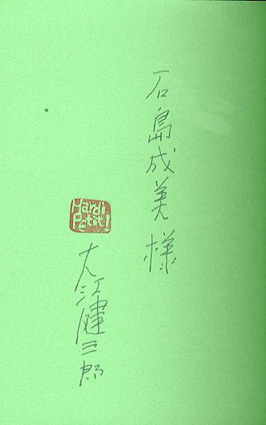 石島成美様
Hardi
Petit!
大江健三郎